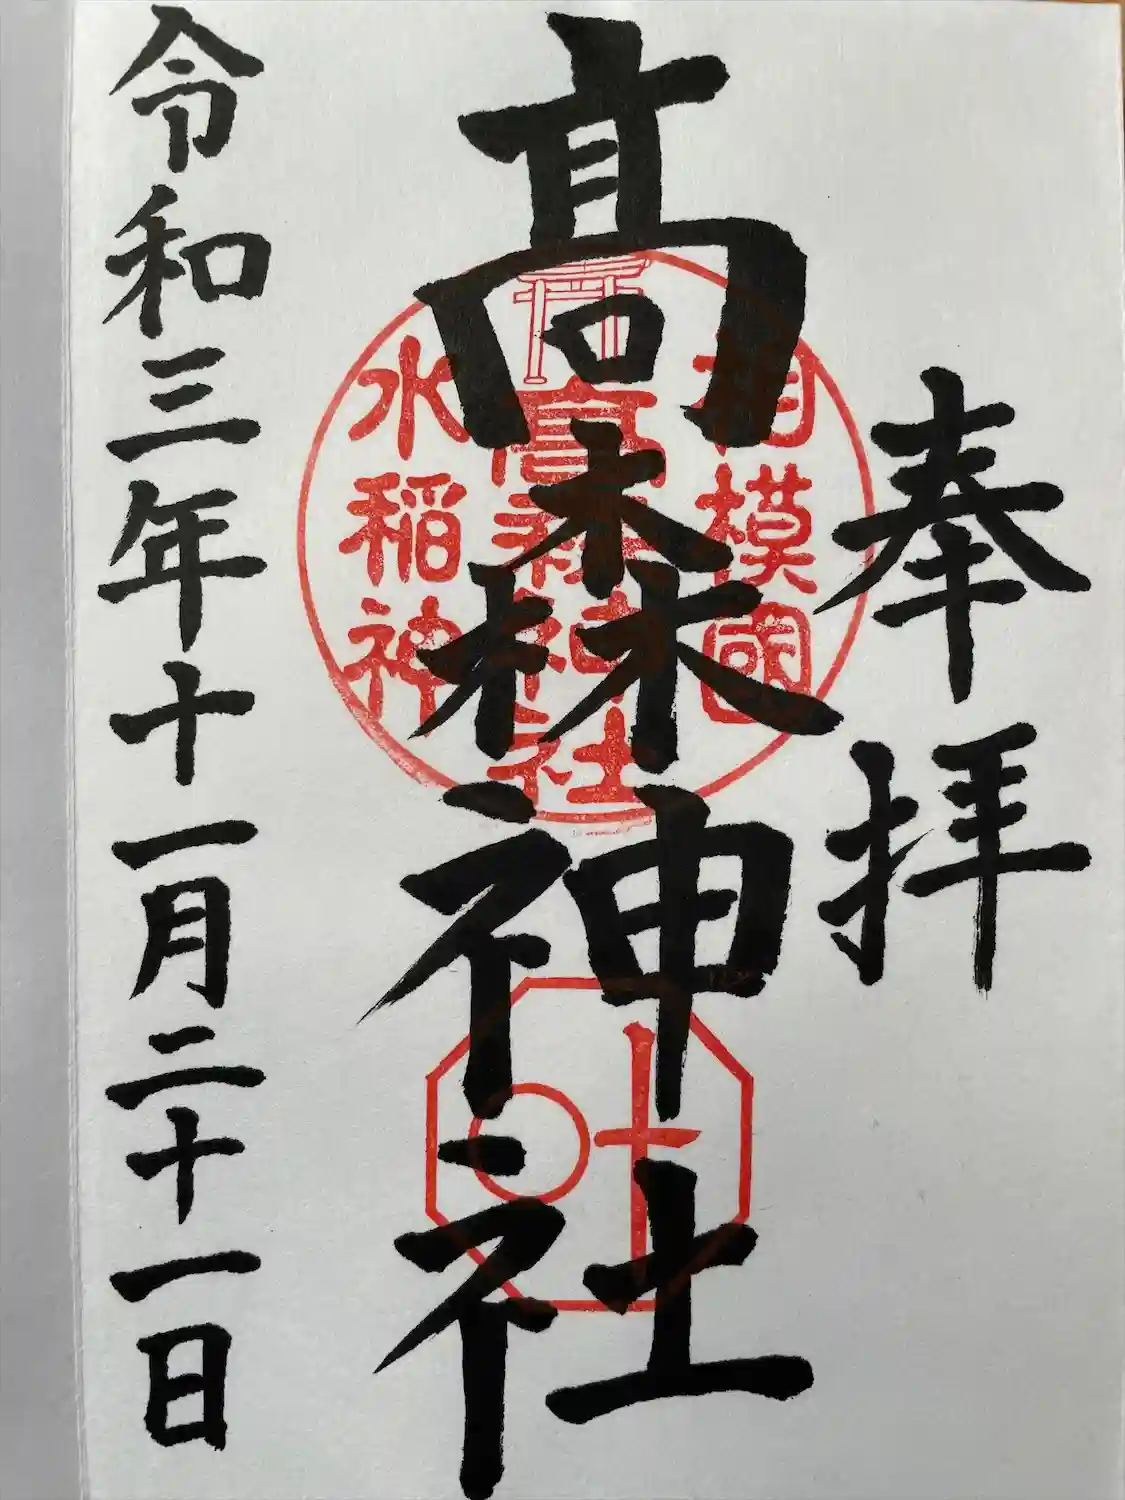 奉拝
髙森神社
相模國
高森神社
水稲神
令和三年十一月二十一日